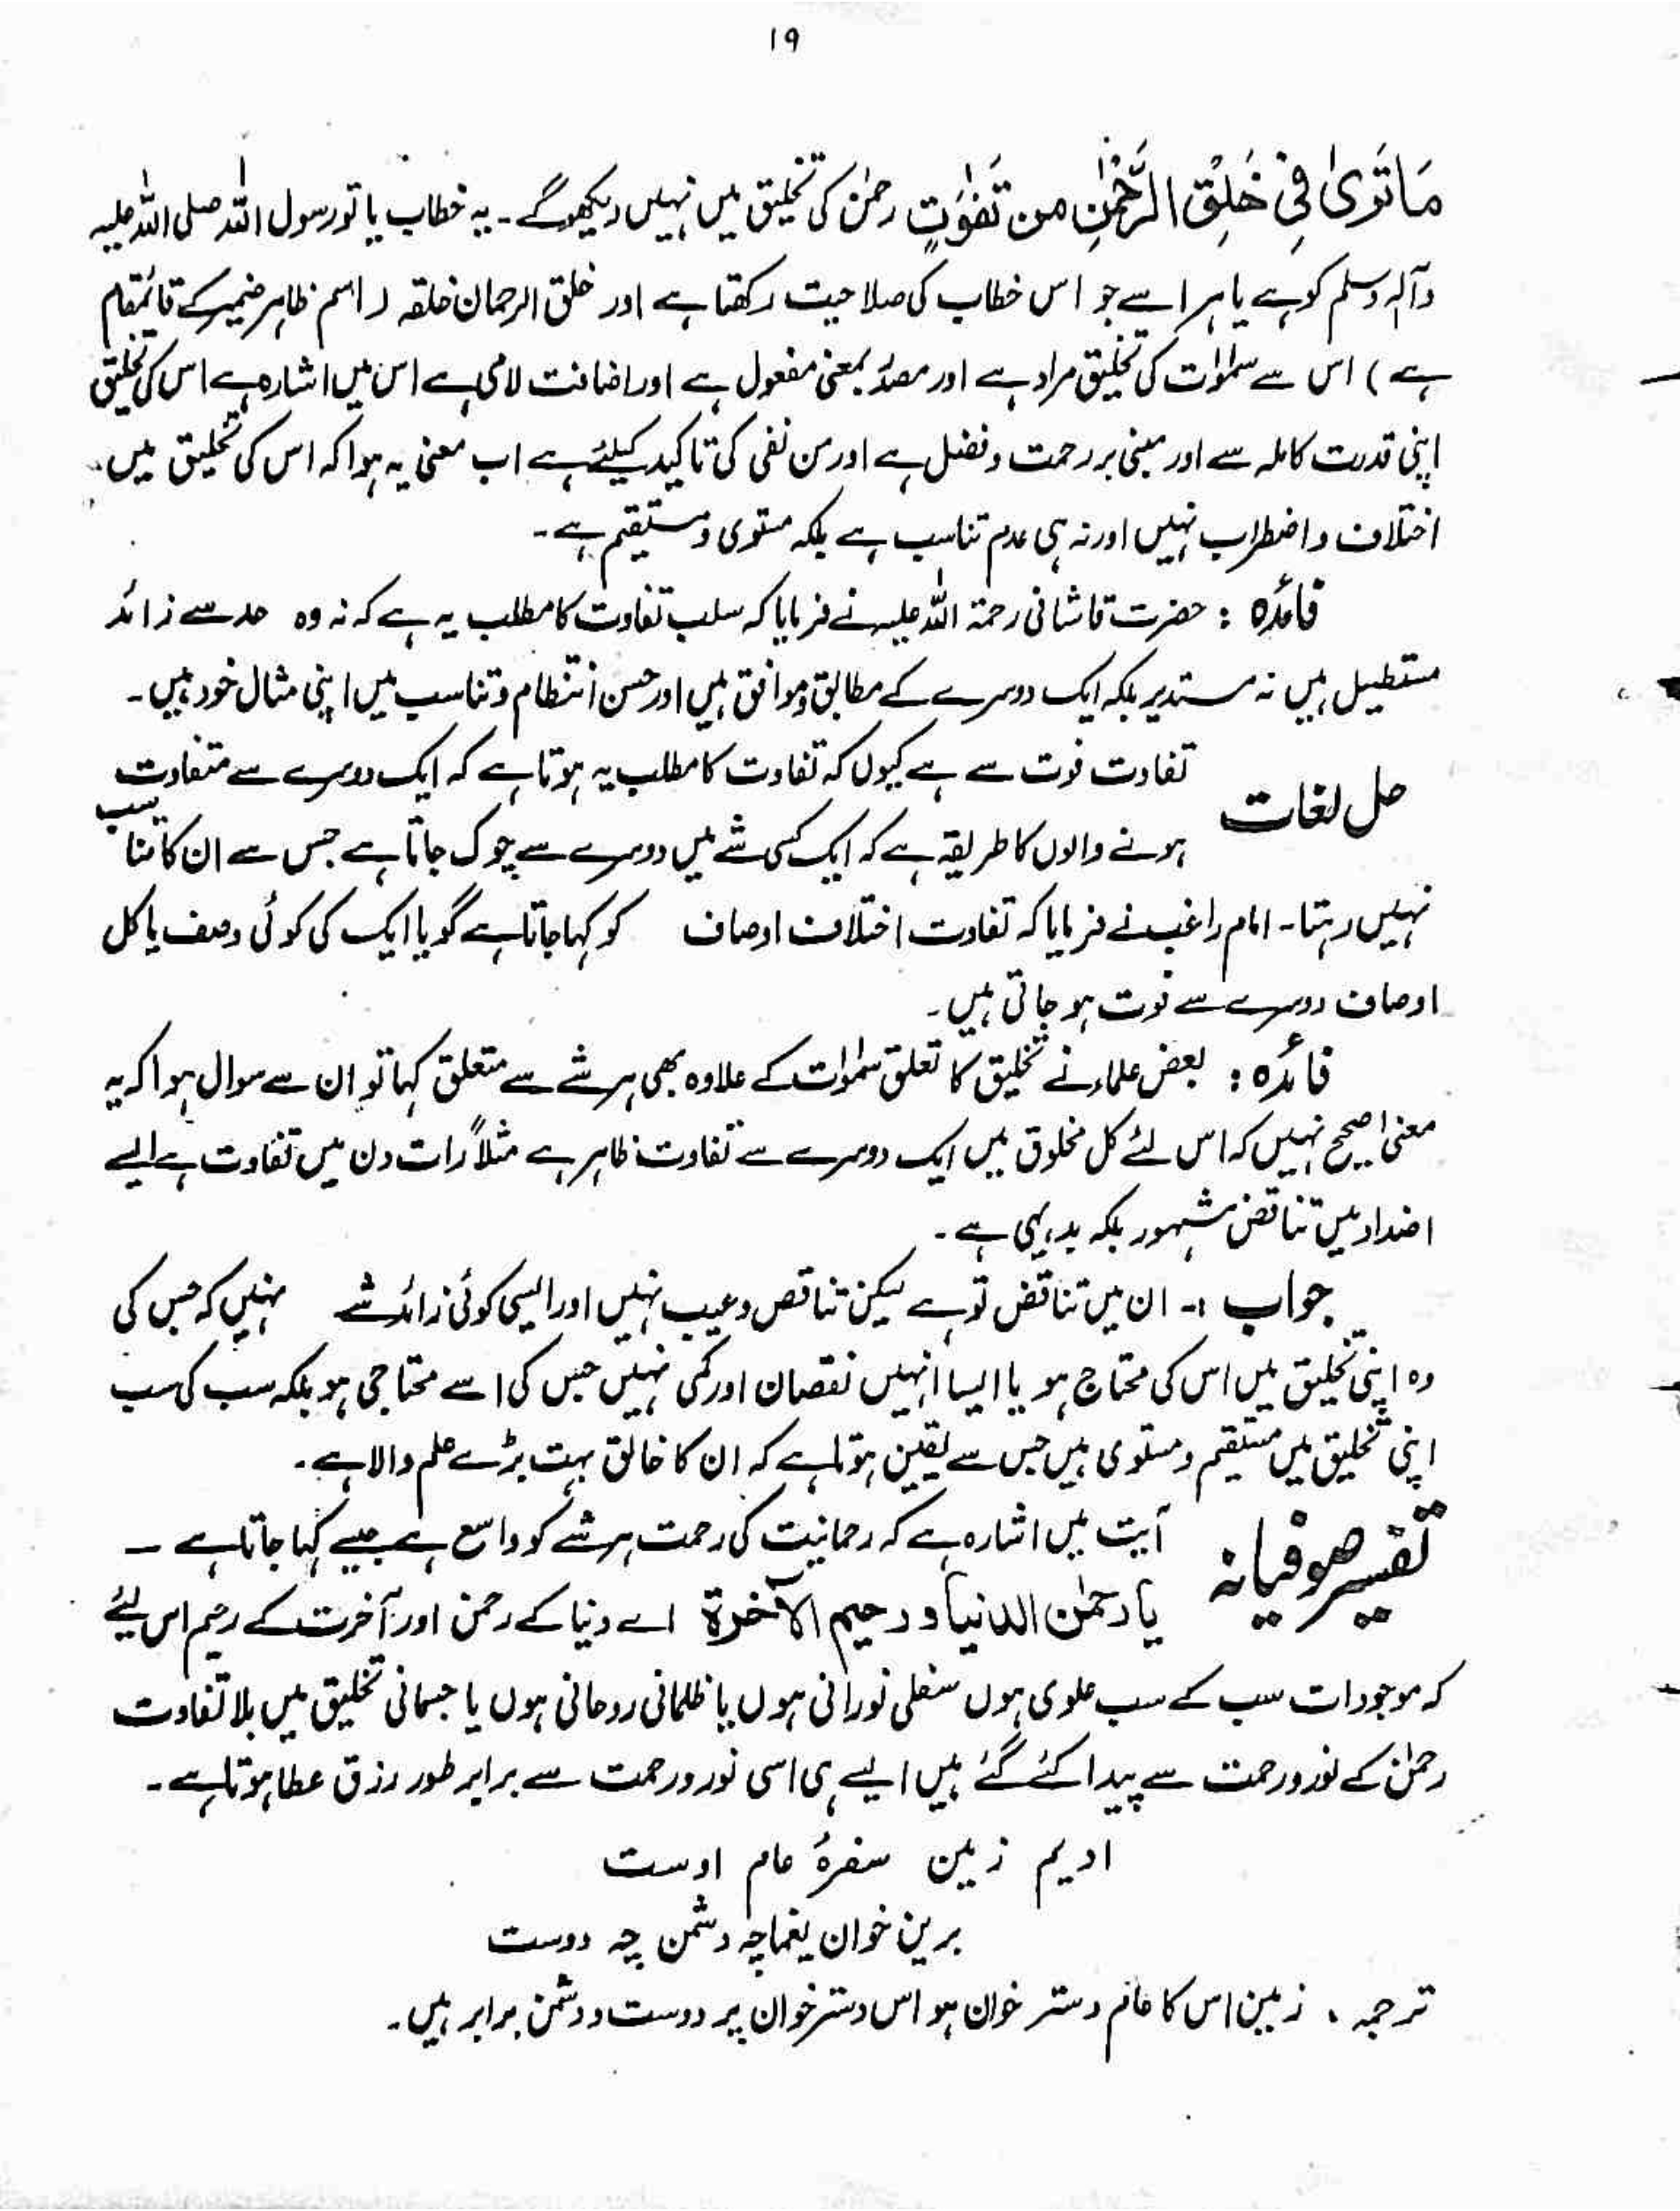 ۱۹
مَا تَرٰی فِیْ خَلْقِ الرَّحْمٰنِ من تَفٰوُتٍ رحمٰن کی تخلیق میں نہیں دیکھو گے۔ یہ خطاب یا تو رسول اللہ صلی اللہ علیہ
وآلہ وسلم کو ہے یا ہر اسے جو اس خطاب کی صلاحیت رکھتا ہے اور خلق الرحمان خلقہ (اسم ظاہر ضمیر کے قائمقام
ہے) اس سے سمٰوٰت کی تخلیق مراد ہے اور مصدر بمعنی مفعول ہے اور اضافت لامی ہے اس میں اشارہ ہے اس کی تخلیق
اپنی قدرت کاملہ سے اور مبنی بر رحمت و فضل ہے اور من نفی کی تاکید کیلئے ہے اب معنی یہ ہوا کہ اس کی تخلیق میں
اختلاف و اضطراب نہیں اور نہ ہی عدم تناسب ہے بلکہ مستوی و مستقیم ہے۔
فائدہ : حضرت قاشانی رحمۃ اللہ علیہ نے فرمایا کہ سلب تفاوت کا مطلب یہ ہے کہ نہ وہ حد سے زائد
مستطیل ہیں نہ مستدیر بلکہ ایک دوسرے کے مطابق و موافق ہیں اور حسن انتظام و تناسب میں اپنی مثال خود ہیں۔
حل لغات تفاوت فوت سے ہے کیوں کہ تفاوت کا مطلب یہ ہوتا ہے کہ ایک دوسرے سے متفاوت
ہونے والوں کا طریقہ ہے کہ ایک کسی شے میں دوسرے سے چوک جاتا ہے جس سے ان کا تناسب
نہیں رہتا۔ امام راغب نے فرمایا کہ تفاوت اختلاف اوصاف کو کہا جاتا ہے گویا ایک کی کوئی وصف یا کل
اوصاف دوسرے سے فوت ہو جاتی ہیں۔
فائدہ : بعض علماء نے تخلیق کا تعلق سمٰوٰت کے علاوہ بھی ہر شے سے متعلق کہا تو ان سے سوال ہوا کہ یہ
معنی صحیح نہیں کہ اس لئے کل مخلوق میں ایک دوسرے سے تفاوت ظاہر ہے مثلاً رات دن میں تفاوت ہے ایسے
اضداد میں تناقض مشہور بلکہ بدیہی ہے۔
جواب :- ان میں تناقض تو ہے لیکن تناقص و عیب نہیں اور ایسی کوئی زائد شے نہیں کہ جس کی
وہ اپنی تخلیق میں اس کی محتاج ہو یا ایسا انہیں نقصان اور کمی نہیں جس کی اسے محتاجی ہو بلکہ سب کی سب
اپنی تخلیق میں مستقیم و مستوی ہیں جس سے یقین ہوتا ہے کہ ان کا خالق بہت بڑے علم والا ہے۔
تفسیر صوفیانہ آیت میں اشارہ ہے کہ رحمانیت کی رحمت ہر شے کو واسع ہے جیسے کہا جاتا ہے ۔
یا رحمٰن الدنیا و رحیم الآخرۃ اے دنیا کے رحمن اور آخرت کے رحیم اس لیئے
کہ موجودات سب کے سب علوی ہوں سفلی نورانی ہوں یا ظلمانی روحانی ہوں یا جسمانی تخلیق میں بلا تفاوت
رحمٰن کے نور و رحمت سے پیدا کئے گئے ہیں ایسے ہی اسی نور و رحمت سے برابر طور رزق عطا ہوتا ہے۔
ادیم زمین سفرۂ عام اوست
برین خوان یغما چہ دشمن چہ دوست
ترجمہ ، زمین اس کا عام دستر خوان ہو اس دسترخوان پر دوست و دشمن برابر ہیں۔